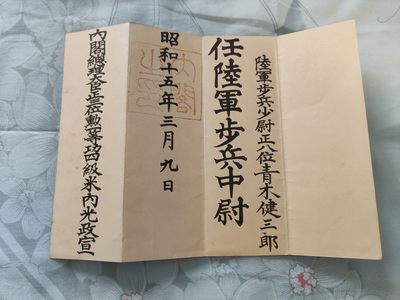 陸軍歩兵少尉正八位青木健三郎
任陸軍歩兵中尉
昭和十五年三月九日
內閣總理大臣正三位勳一等功四級米內光政宣
內閣之印